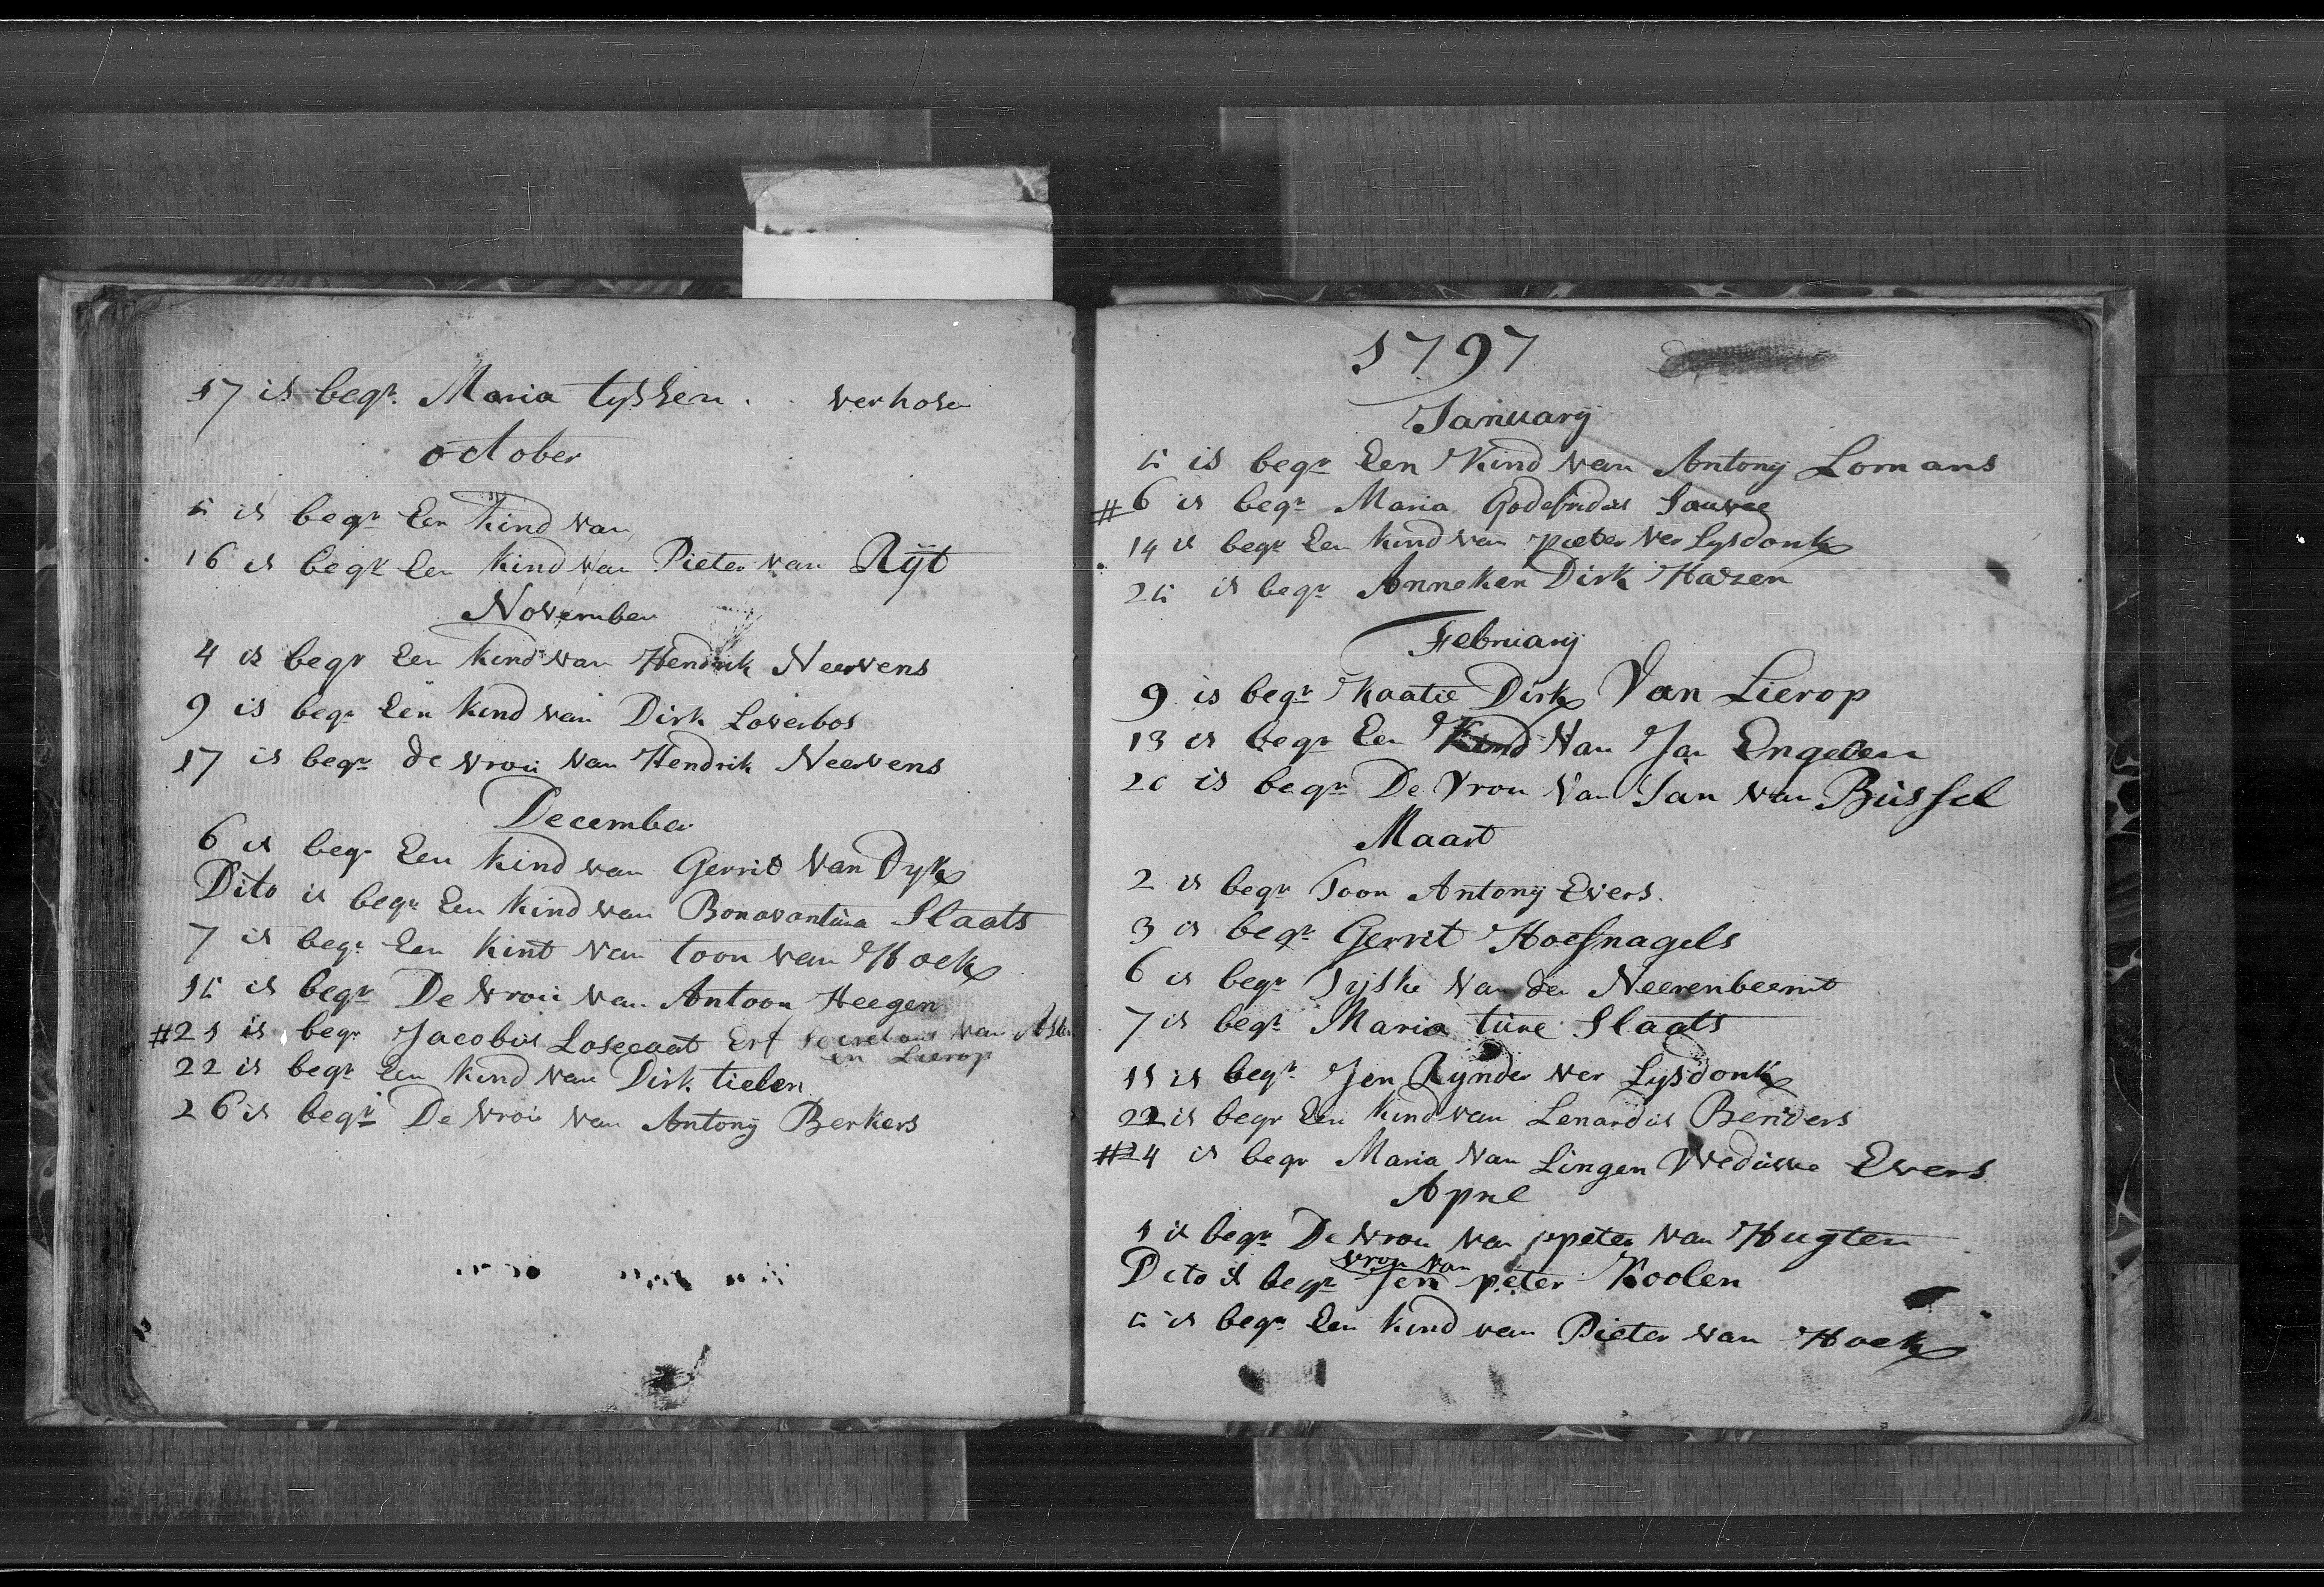 17 is begr. Maria tyssen . . verhosen
october
5 is begr Een kind van
16 is begr Een kind van Pieter van Rijt
November
4 is begr Een kind van Hendrik Neervens
9 is begr Een kind van Dirk Loverbos
17 is begr de vrou van Hendrik Neervens
December
6 is begr Een kind van Gerrit van Dyk
Dito is begr Een kind van Bonavantura Slaats
7 is begr Een kint van toon van Hoek
15 is begr De vrou van Antoon Heegen
#21 is begr Jacobus Losecaat Erf Secretaris van
en Lierop
22 is begr Een kind van Dirk tielen
26 is begr De vrou van Antony Berkers
1797
January
5 is begr Een Kind van Antony Lomans
#6 is begr Maria Godefridus Sauvee
14 is begr Een kind van pieter ver Lysdonk
25 is begr Anneken Dirk Hazen
February
9 is begr Kaatie Dirk Van Lierop
13 is begr Een Kind van Jan Engelen
20 is begr De Vrou van Jan van Bussel
Maart
2 is begr Toon Antony Evers.
3 is begr Gerrit Hoefnagels
6 is begr Tyske van der Neerenbeemt
7 is begr Maria ture Slaats
11 is begr Jen Rynder ver Lysdonk
22 is begr Een kind van Lenardus Benders
#24 is begr Maria van Lingen Weduwe Evers
April
1 is begr De vrou van peter van Hugten
vrou van
Dito is begr Jen peter Koolen
5 is begr Een kind van Pieter van Hoek